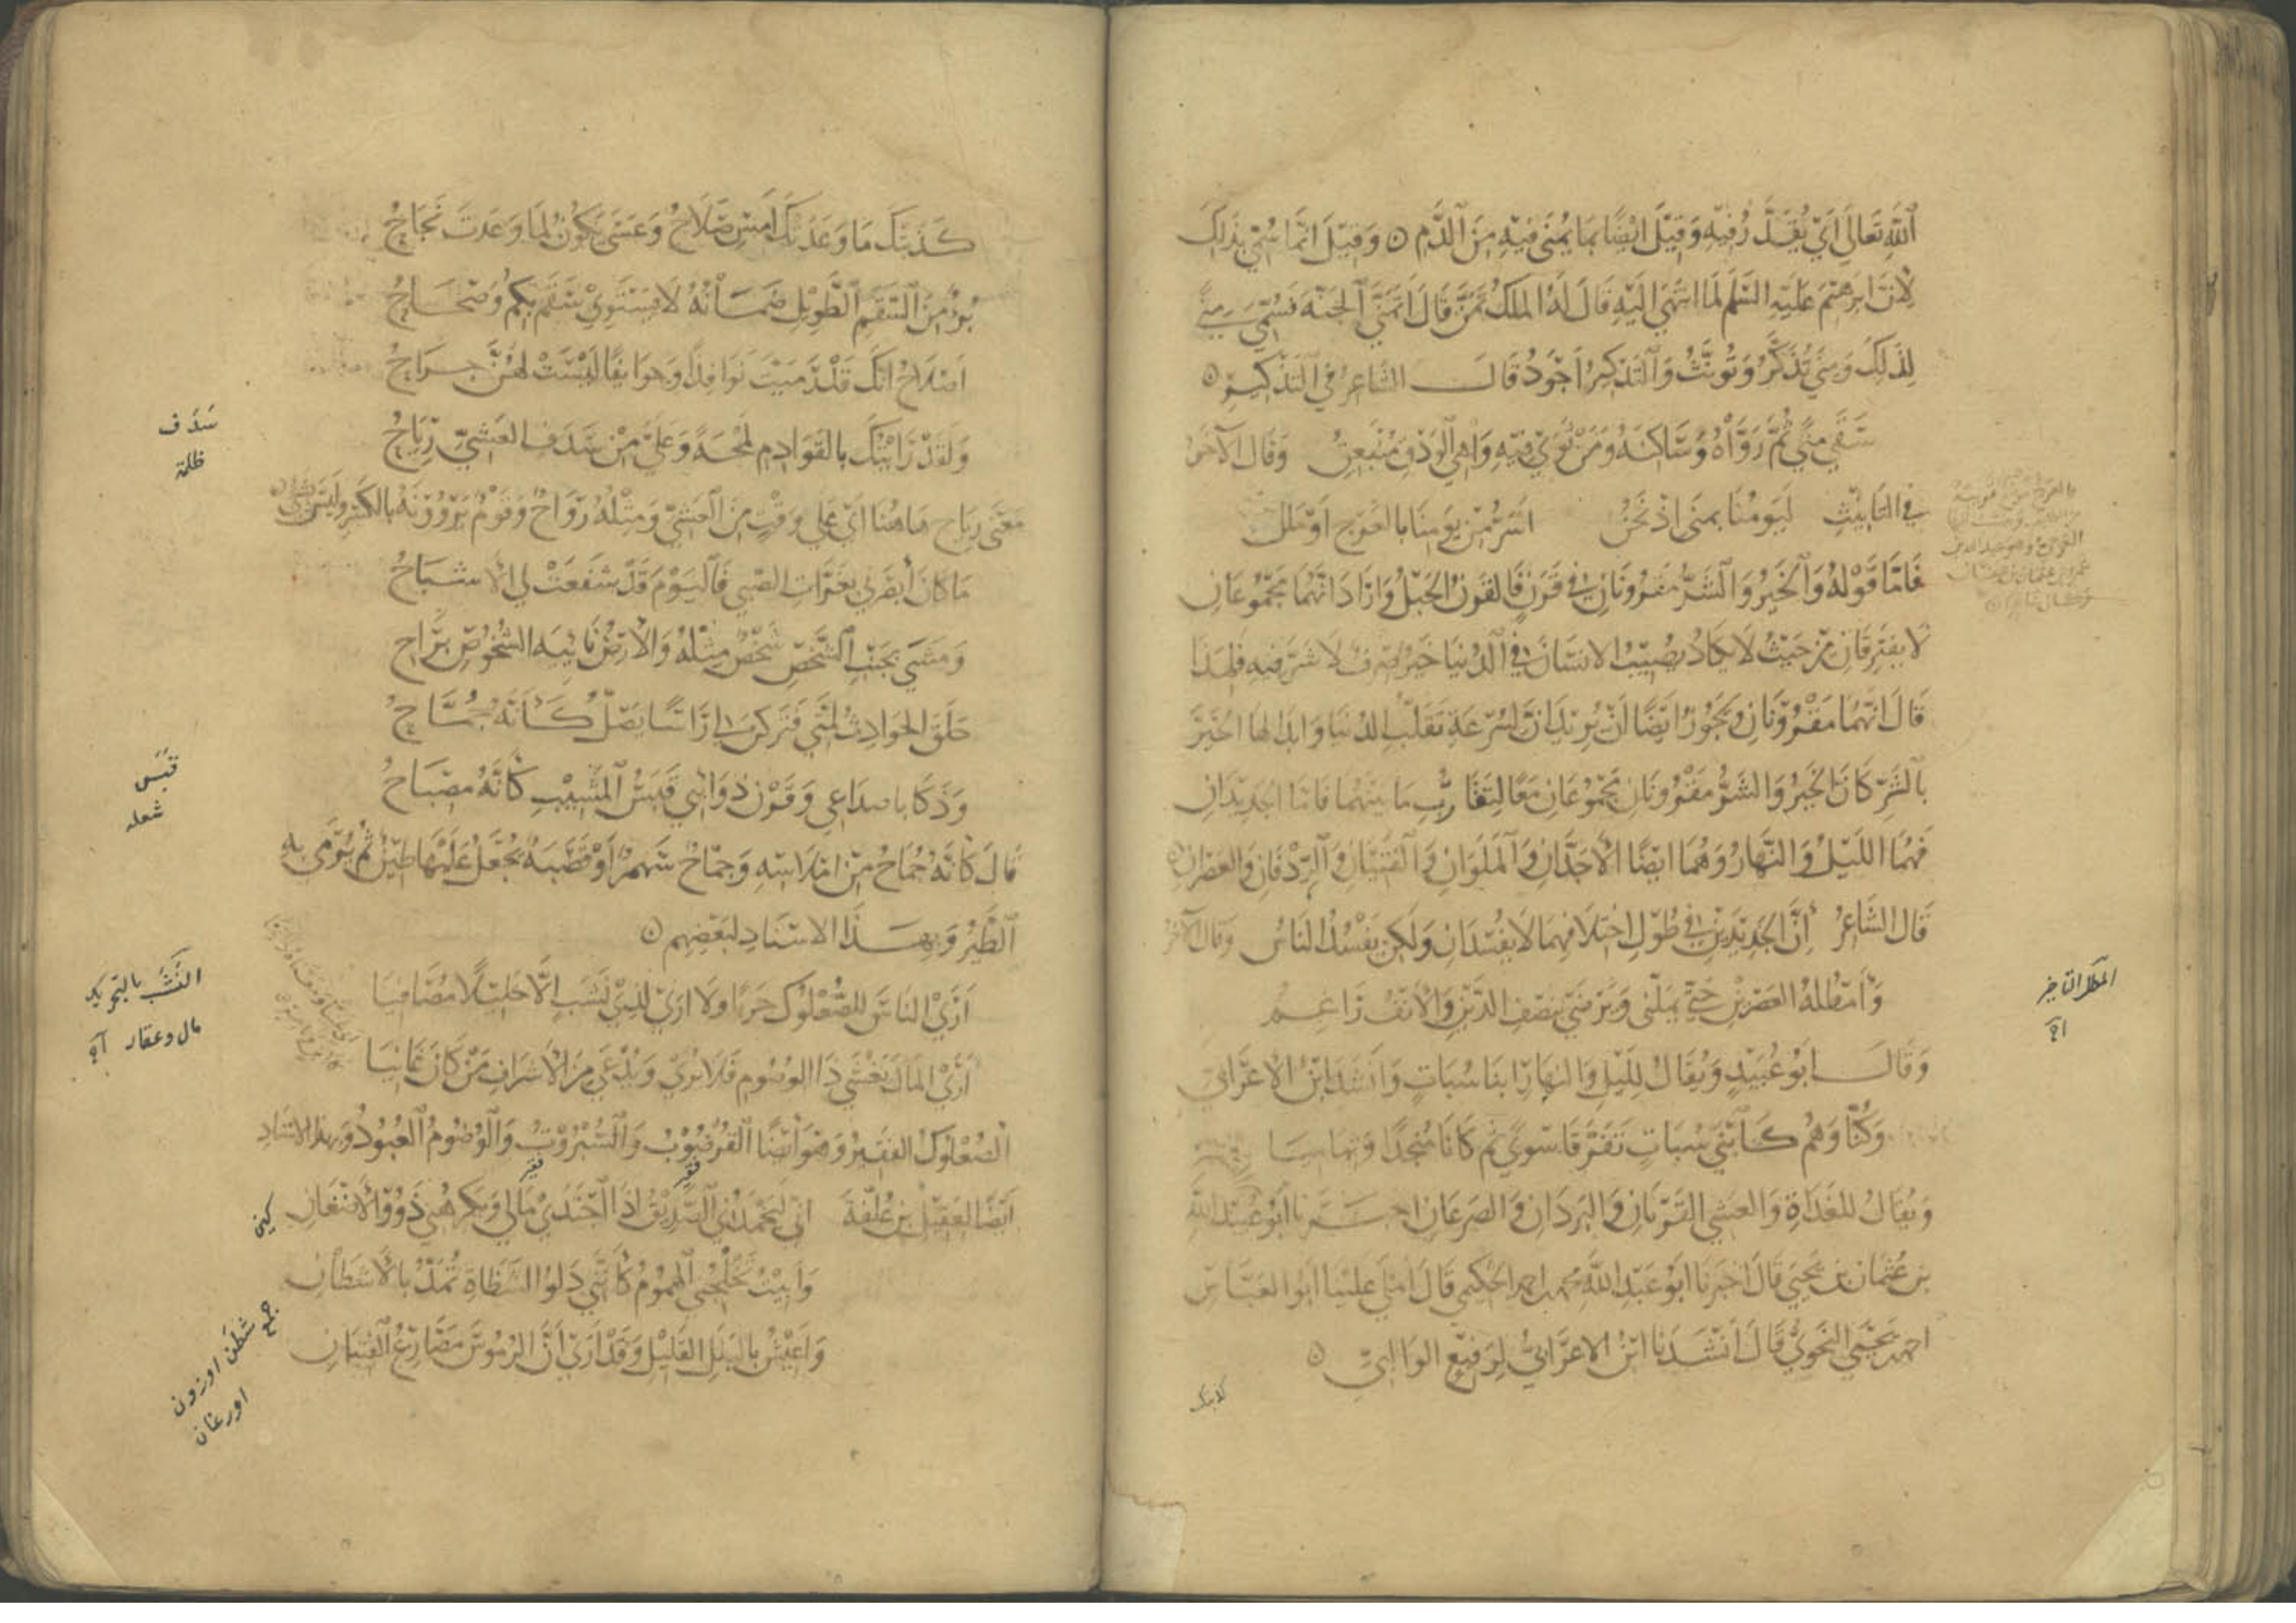 ٱللّٰهِ تَعَالَى أَيْ يُقَدَّرُ فِيْهِ وَقِيْلَ اَيْضًا بِمَا يُمْنَى فِيْهِ مِنَ ٱلدَّمِ ۞ وَقِيْلَ اِنَّمَا سُمِّيَ بِذٰلِكَ
لِاَنَّ اِبْرٰهِيْمَ عَلَيْهِ السَّلَمُ لَمَّا انْتَهَى اِلَيْهِ قَالَ لَهُ المَلَكُ تَمَنَّ قَالَ اَتَمَنَّى ٱلجَنَّةَ فَسُمِّيَ مِنًى
لِذٰلِكَ وَمِنًى تُذَكَّرُ وَتُؤَنَّثُ وَٱلتَّذْكِيْرُ اَجْوَدُ قَالَ الشَّاعِرُ فِي التَّذْكِيْرِ ۞
سَقَى مِنًى ثُمَّ رَوَّاهُ وَسَاكِنَهُ وَمَنْ ثَوَى فِيْهِ وَاهِي ٱلوَدْقِ مُنْبَعِقُ وَقَالَ الآخَرُ
فِي التَّانِيْثِ لَيَوْمُنَا بِمِنًى اِذْ نَحْنُ اَسَرُّ مِنْ يَوْمِنَا بِالعَرْجِ اَوْ مَلَلِ
فَامَّا قَوْلُهُ وَٱلْخَيْرُ وَٱلشَّرُّ مَقْرُوْنَانِ فِي قَرَنٍ فَالقَرَنُ الحَبْلُ وَاَرَادَ اَنَّهُمَا مَجْمُوْعَانِ
لَا يَفْتَرِقَانِ مِنْ حَيْثُ لَا يَكَادُ يُصِيْبُ الاِنْسَانَ فِي ٱلدُّنْيَا خَيْرٌ صِرْفٌ لَا شَرَّ فِيْهِ فَلِهٰذَا
قَالَ اِنَّهُمَا مَقْرُوْنَانِ وَيَجُوْزُ اَيْضًا اَنْ يُرِيْدَ اَنَّ لِسُرْعَةِ تَقَلُّبِ الدُّنْيَا وَاِبْدَالِهَا الخَيْرَ
بِٱلشَّرِّ كَانَ الخَيْرُ وَالشَّرُّ مَقْرُوْنَانِ مَجْمُوْعَانِ مَعًا لِتَقَارُبِ مَا بَيْنَهُمَا فَامَّا الجَدِيْدَانِ
فَهُمَا اللَّيْلُ وَالنَّهَارُ وَهُمَا اَيْضًا الاَجَدَّانِ وَٱلْمَلَوَانِ وَٱلْفَتَيَانِ وَٱلرِّدْفَانِ وَالعَصْرَانِ ۞
قَالَ الشَّاعِرُ اِنَّ الجَدِيْدَيْنِ فِي طُوْلِ اخْتِلَافِهِمَا لَا يَفْسُدَانِ وَلٰكِنْ يَفْسُدُ النَّاسُ وَقَالَ الآخَرُ
وَأَمْطُلُهُ العَصْرَيْنِ حَتَّى يَمَلَّنِي وَيَرْضَى بِنِصْفِ الدَّيْنِ وَالْاَنْفُ رَاغِمُ
وَقَالَ ابُوْ عُبَيْدٍ وَيُقَالُ لِلَّيْلِ وَالنَّهَارِ ابْنَا سُبَاتٍ وَاَنْشَدَ ابْنُ الاَعْرَابِيِّ
وَكُنَّا وَهُمْ كَٱبْنَيْ سُبَاتٍ تَفَرَّقَا سِوًى ثُمَّ كَانَا مُنْجِدًا وَتِهَامِيَا
وَيُقَالُ لِلغَدَاةِ وَالعَشِيِّ القَرَّتَانِ وَالبَرْدَانِ وَالصَّرْعَانِ اخبرنا اَبُوْ عُبَيْدِ اللّٰهِ
بنُ عُثْمَانَ بنِ يَحْيَى قَالَ اَخْبَرَنَا ابُوْ عَبْدِ اللّٰهِ مُحَمَّدُ بن احمدَ الحَكِيْمِي قَالَ اَمْلَى عَلَيْنَا اَبُو العَبَّاسِ
احمدُ بنُ يَحْيَى النَّحْوِيُّ قَالَ اَنْشَدَنَا ابْنُ الاَعْرَابِيِّ لِرُفَيْعٍ الوَالِبِيِّ ۞
كذبتك
المطل التاخير
اه
كَذَبَتْكَ مَا وَعَدَتْكَ اَمْسِ صَلَاحُ وَعَسَى يَكُوْنُ لِمَا وَعَدَتْ نَجَاحُ
بُرْءٌ مِنَ السَّقَمِ الطَّوِيْلِ ضَمَانُهُ لَا يَسْتَوِي سَقَمٌ بِكُمْ وَصَحَاحُ
اَصَلَاحُ اِنَّكِ قَدْ رَمَيْتِ نَوَافِذًا وَجَوَائِفًا لَيْسَتْ لَهُنَّ جِرَاحُ
وَلَقَدْ رَاَيْتُكِ بِالقَوَادِمِ لَمْحَةً وَعَلَيَّ مِنْ سَدَفِ العَشِيِّ رِيَاحُ
مَعْنَى رِيَاحٍ هَاهُنَا اَيْ عَلَى وَقْتٍ مِنَ العَشِيِّ وَمِثْلُهُ رَوَاحٌ وَقَوْمٌ يَرْوُوْنَهُ بِالكَسْرِ وَلَيْسَ بِشَيْءٍ ۞
مَا كَانَ أَبْصَرَنِي بِغِرَّاتِ الصِّبَى فَٱليَوْمَ قَدْ شُفِعَتْ لِيَ الاَشْبَاحُ
وَمَشَى بِجَنْبِ ٱلشَّخْصِ شَخْصٌ مِثْلُهُ وَالْاَرْضُ نَائِيَةُ الشُّخُوْصِ بَرَاحُ
حَلَقَ الحَوَادِثُ لِمَّتِي فَتَرَكْنَ لِي رَاْسًا يَصِلُّ كَاَنَّهُ جُمَّاحُ
وَذَكَا بِاَصْدَاغِي وَقَرْنِ ذُوَابَتِي قَبَسُ المَشِيْبِ كَاَنَّهُ مِصْبَاحُ
قَالَ كَاَنَّهُ جُمَّاحُ مِنِ امِّلَاسِهِ وَجُمَّاحُ سَهْمٌ اَوْ قَصَبَةٌ يُجْعَلُ عَلَيْهَا طِيْنٌ ثُمَّ يُرْمَى بِهِ
الطَّيْرُ وَبِهٰذَا الاِسْنَادِ لِبَعْضِهِمْ ۞
اَرَى النَّاسَ لِلصُّعْلُوْكِ حَرْبًا وَلَا اَرَى لِذِي نَشَبٍ اِلَّا خَلِيْلًا مُصَافِيَا
اَرَى المَالَ يَغْشَى ذَا الوُصُوْمِ فَلَا تُرَى وَيُدْعَى مِنَ الْاَشْرَافِ مَنْ كَانَ غَانِيَا
الصُّعْلُوْكُ الفَقِيْرُ وَهُوَ اَيْضًا القُرْضُوْبُ وَالسُّبْرُوْتُ وَالوُصُوْمُ العُيُوْبُ وَبِهٰذَا الاِسْنَادِ
اَيْضًا لِعَقِيْلِ بنِ عُلَّفَةَ اِنِّي لَيَحْمَدُنِي الصَّدِيْقُ اِذَا اجْتَدَى مَالِي وَيَكْرَهُنِي ذَوُو الْاَضْغَانِ
فقير
كين
وَاَبِيْتُ تَخْلِجُنِي الهُمُوْمُ كَاَنَّنِي دَلْوُ السُّقَاةِ تُمَدُّ بِالْاَشْطَانِ
وَاَعِيْشُ بِالبَلَلِ القَلِيْلِ وَقَدْ اَرَى اَنَّ الرُّمُوْسَ مَصَارِعُ الفِتْيَانِ
سَدَف
ظلمة
قبَس
شعله
النَّشَب بالتحريك
مال وعقار اه
جمع شطن اوزون
اورغان